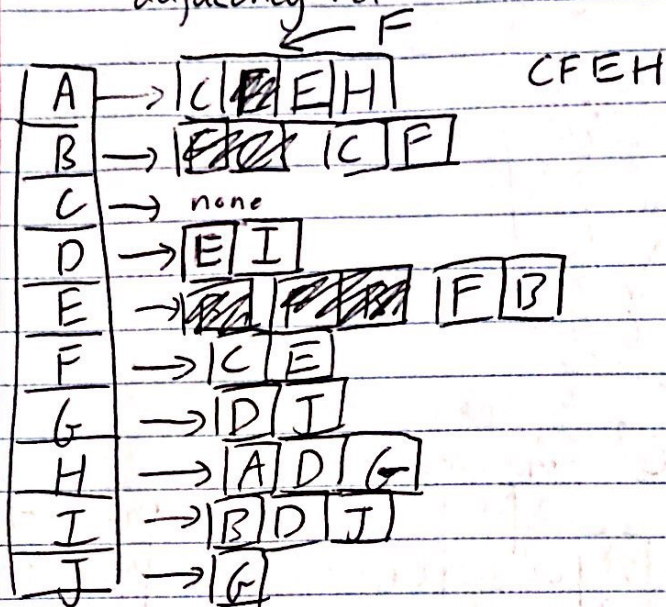 ← F
A → C E H CFEH
B → C F
C → none
D → E I
E → F B
F → C E
G → D I
H → A D G
I → B D J
J → G